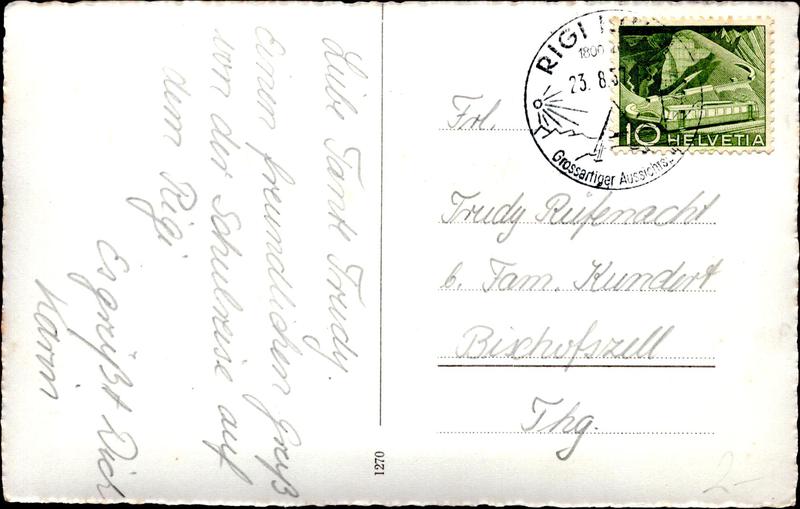 Liebe Tante Trudy.
Einen freundlichen Gruß
von der Schulreise auf
dem Rigi
Es grüßt Dich
Karin
1270
RIGI
1800
23. 8. 5
Grossartiger Aussichts
10 HELVETIA
Frl.
Trudy Rüfenacht
b. Fam. Kundert
Bischofszell
Thg.
2-